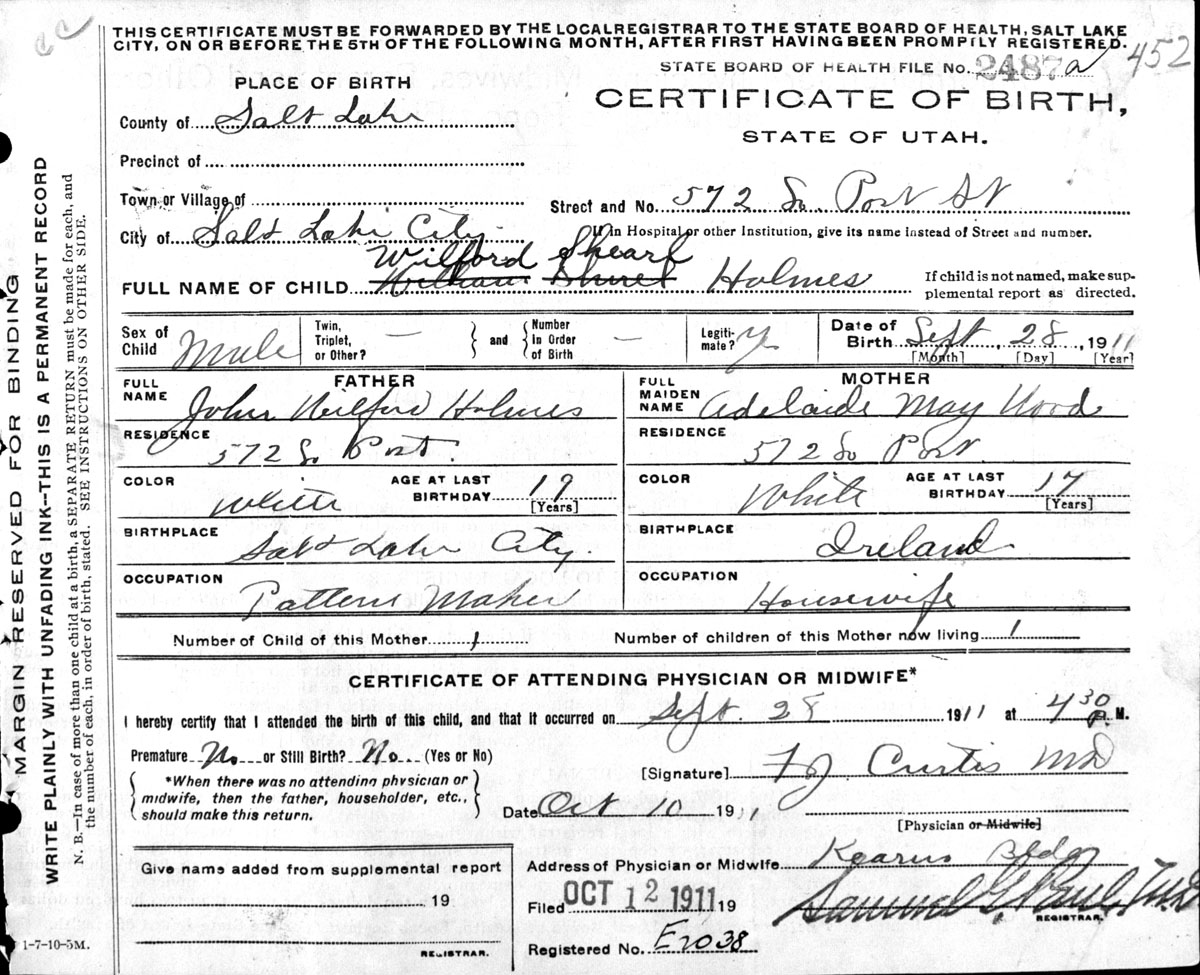 THIS CERTIFICATE MUST BE FORWARDED BY THE LOCAL REGISTRAR TO THE STATE BOARD OF HEALTH, SALT LAKE
CITY, ON OR BEFORE THE 5TH OF THE FOLLOWING MONTH, AFTER FIRST HAVING BEEN PROMPTLY REGISTERED.
452
STATE BOARD OF HEALTH FILE No. 2487 a
PLACE OF BIRTH
CERTIFICATE OF BIRTH,
County of Salt Lake
STATE OF UTAH.
Precinct of
Town or Village of
Street and No. 572 So. Post St
City of Salt Lake City
If in Hospital or other Institution, give its name instead of Street and number.
Wilford Shearl
FULL NAME OF CHILD William Holmes
If child is not named, make sup-
plemental report as directed.
Sex of Child Male
Twin, Triplet, or Other? —
and
Number In Order of Birth —
Legiti-mate? y
Date of Birth Sept. 28, 1911
[Month] [Day] [Year]
FATHER
FULL NAME John Wilford Holmes
RESIDENCE 572 So Post.
COLOR White
AGE AT LAST BIRTHDAY 19 [Years]
BIRTHPLACE Salt Lake City.
OCCUPATION Pattern Maker
MOTHER
FULL MAIDEN NAME Adelaide May Wood
RESIDENCE 572 So Post.
COLOR White
AGE AT LAST BIRTHDAY 17 [Years]
BIRTHPLACE Ireland
OCCUPATION Housewife
Number of Child of this Mother 1
Number of children of this Mother now living 1
CERTIFICATE OF ATTENDING PHYSICIAN OR MIDWIFE*
I hereby certify that I attended the birth of this child, and that it occurred on Sept. 28 1911 at 4 30 P. M.
Premature No or Still Birth? No (Yes or No)
*When there was no attending physician or
midwife, then the father, householder, etc.,
should make this return.
[Signature] F J Curtis MD
Date Oct 10 1911
[Physician or Midwife]
Give name added from supplemental report
19
REGISTRAR.
Address of Physician or Midwife Kearns Bldg
Filed OCT 12 1911 19
Samuel G. Paul, M.D.
REGISTRAR.
Registered No. E2038
1-7-10-5M.
MARGIN RESERVED FOR BINDING
WRITE PLAINLY WITH UNFADING INK--THIS IS A PERMANENT RECORD
N. B.—In case of more than one child at a birth, a SEPARATE RETURN must be made for each, and
the number of each, in order of birth, stated. SEE INSTRUCTIONS ON OTHER SIDE.